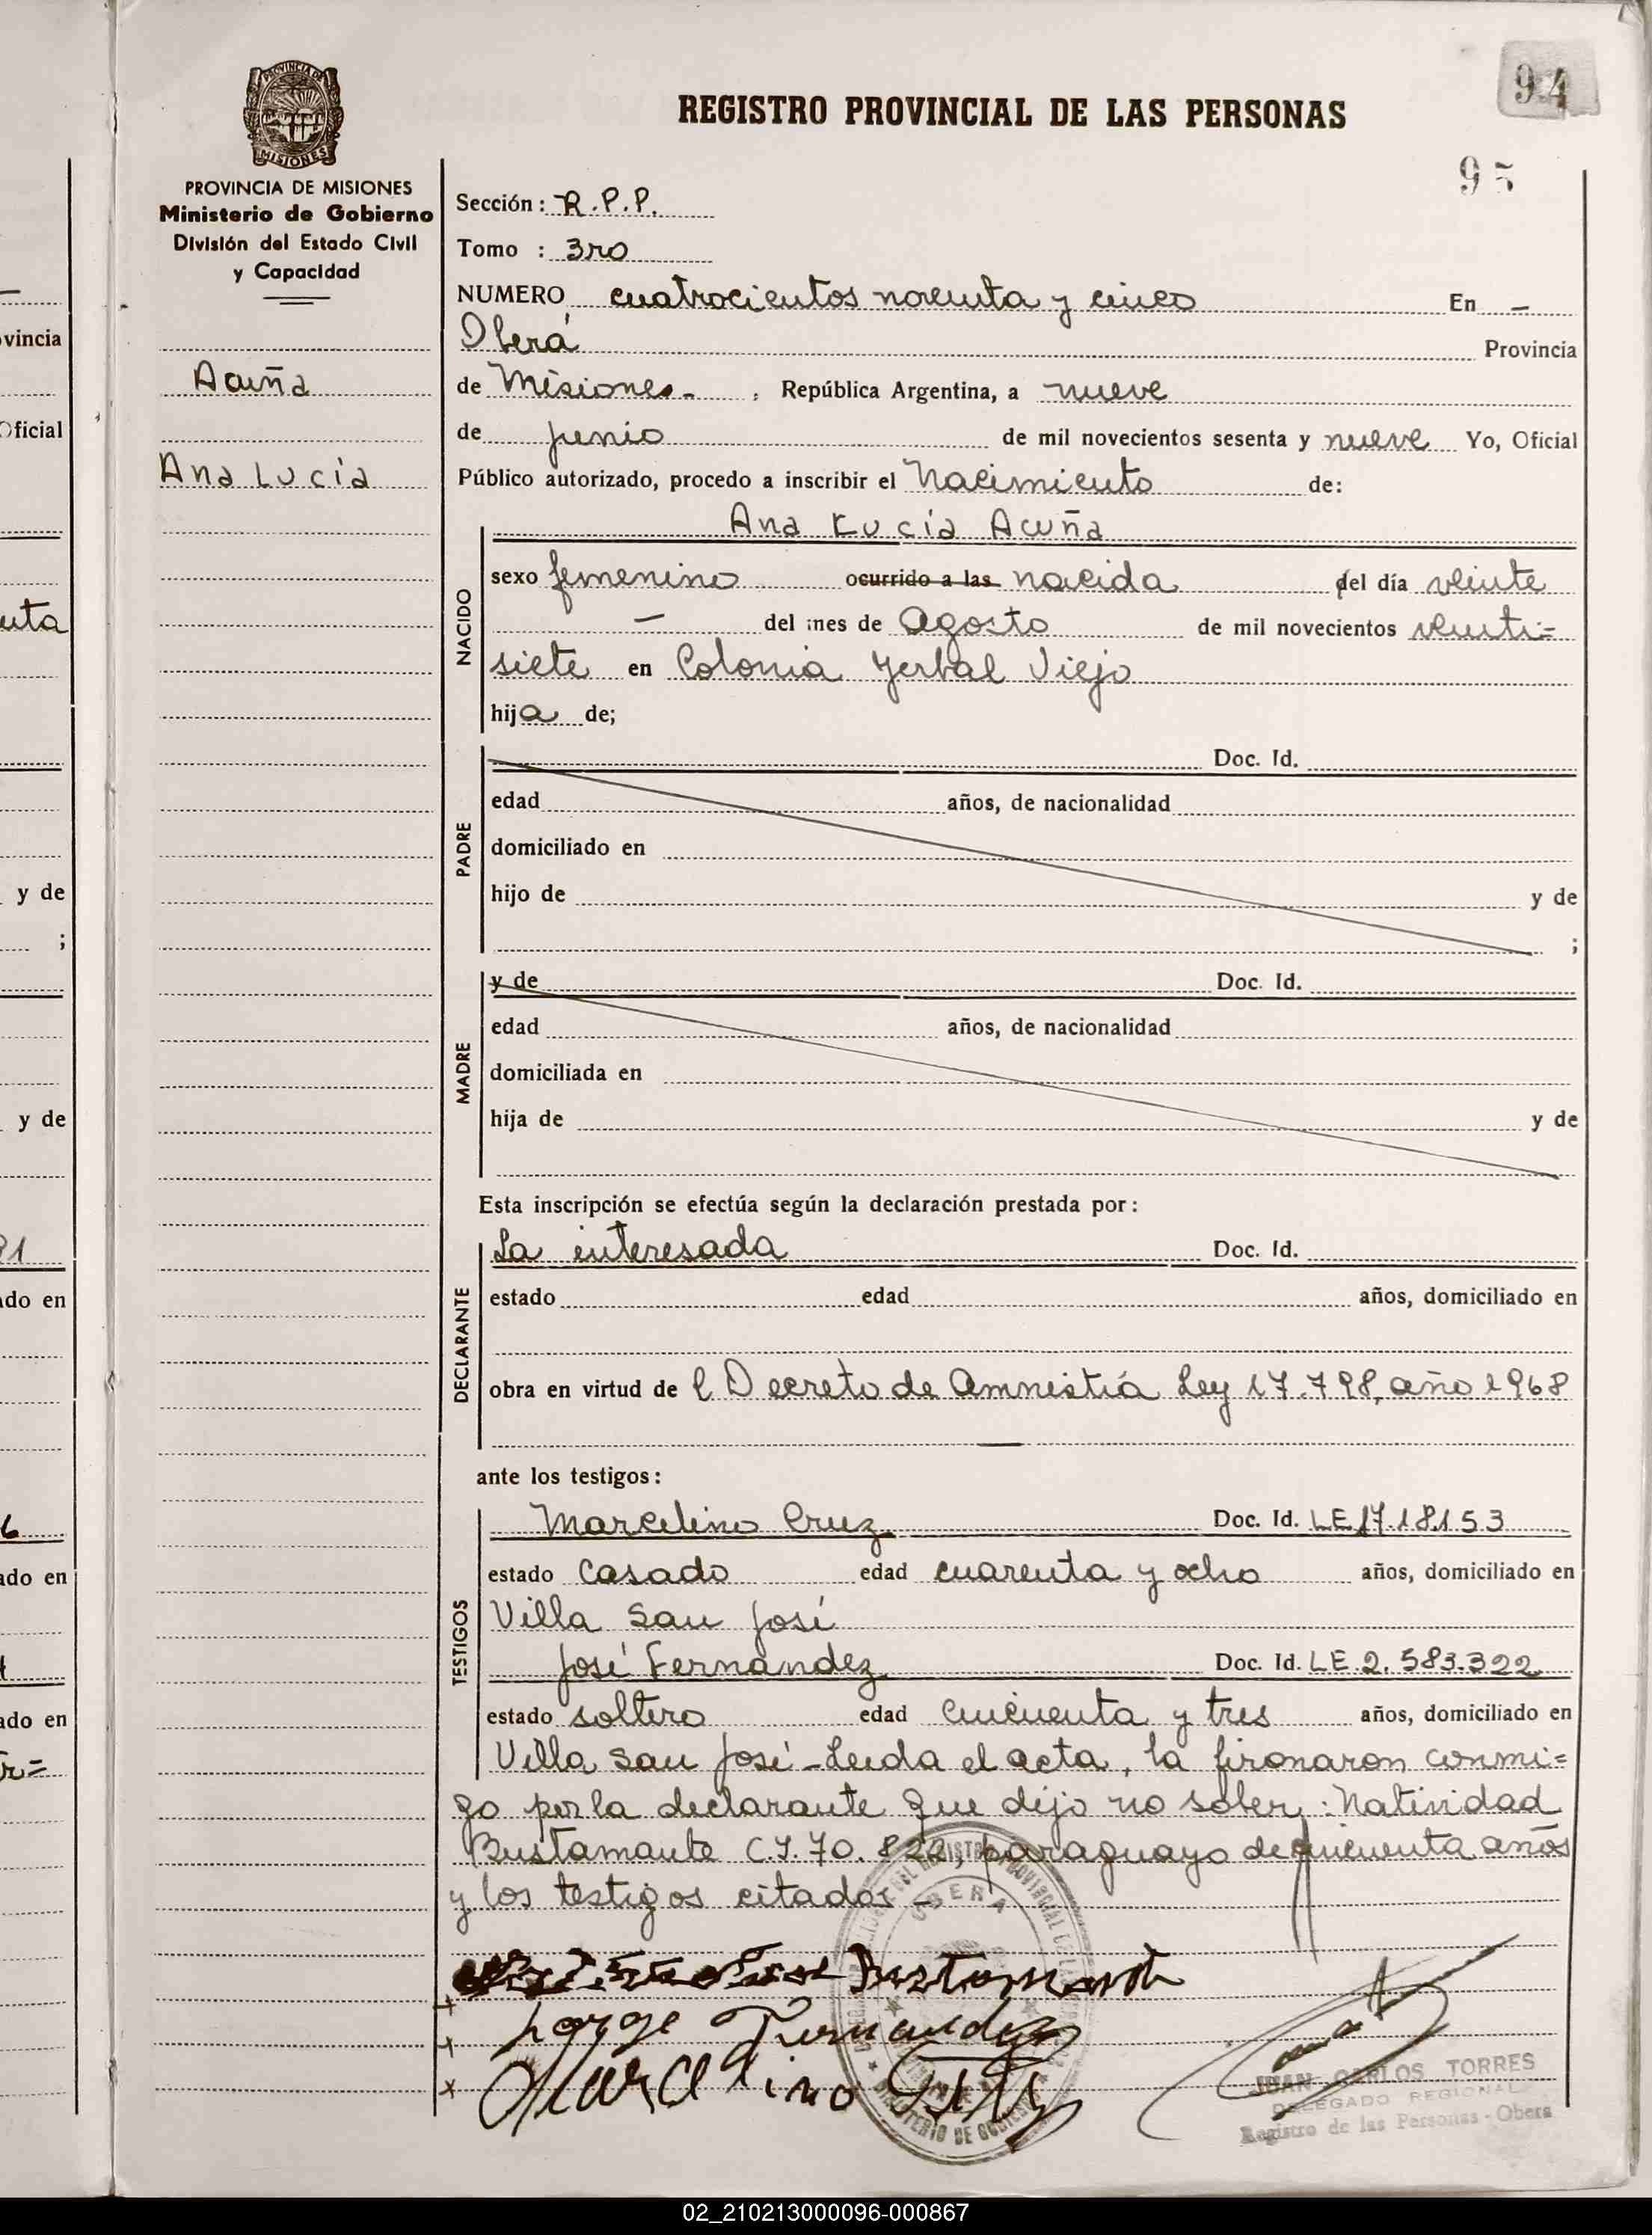 94
REGISTRO PROVINCIAL DE LAS PERSONAS
95
PROVINCIA DE MISIONES
Ministerio de Gobierno
División del Estado Civil
y Capacidad
Acuña
Ana Lucía
Sección: R.P.P.
Tomo : 3ro
NUMERO cuatrocientos noventa y cinco En —
Oberá Provincia
de Misiones - , República Argentina, a nueve
de junio de mil novecientos sesenta y nueve Yo, Oficial
Público autorizado, procedo a inscribir el Nacimiento de:
Ana Lucía Acuña
NACIDO
sexo femenino ocurrido a las nacida del día veinte
— del mes de Agosto de mil novecientos veinti=
siete en Colonia Yerbal Viejo
hija de;
PADRE
Doc. Id.
edad años, de nacionalidad
domiciliado en
hijo de y de
;
MADRE
y de Doc. Id.
edad años, de nacionalidad
domiciliada en
hija de y de
Esta inscripción se efectúa según la declaración prestada por:
DECLARANTE
La interesada Doc. Id.
estado edad años, domiciliado en
obra en virtud de l Decreto de Amnistía Ley 17.798, año 1968
—
ante los testigos:
TESTIGOS
Marcelino Cruz Doc. Id. LE 1718153
estado Casado edad cuarenta y ocho años, domiciliado en
Villa San José
José Fernández Doc. Id. LE.2.583.322
estado soltero edad cincuenta y tres años, domiciliado en
Villa San José - Leida el acta, la firmaron conmi=
go por la declarante que dijo no saber: Natividad
Bustamante C.I.70.822, paraguayo de cincuenta años
y los testigos citados -
OBERA
Bustamante
Jorge Fernandez
Marcelino
JUAN CARLOS TORRES
DELEGADO REGIONAL
Registro de las Personas - Obera
vincia
Oficial
uta
y de
;
y de
91
do en
6
ado en
ado en
r=
02_210213000096-000867